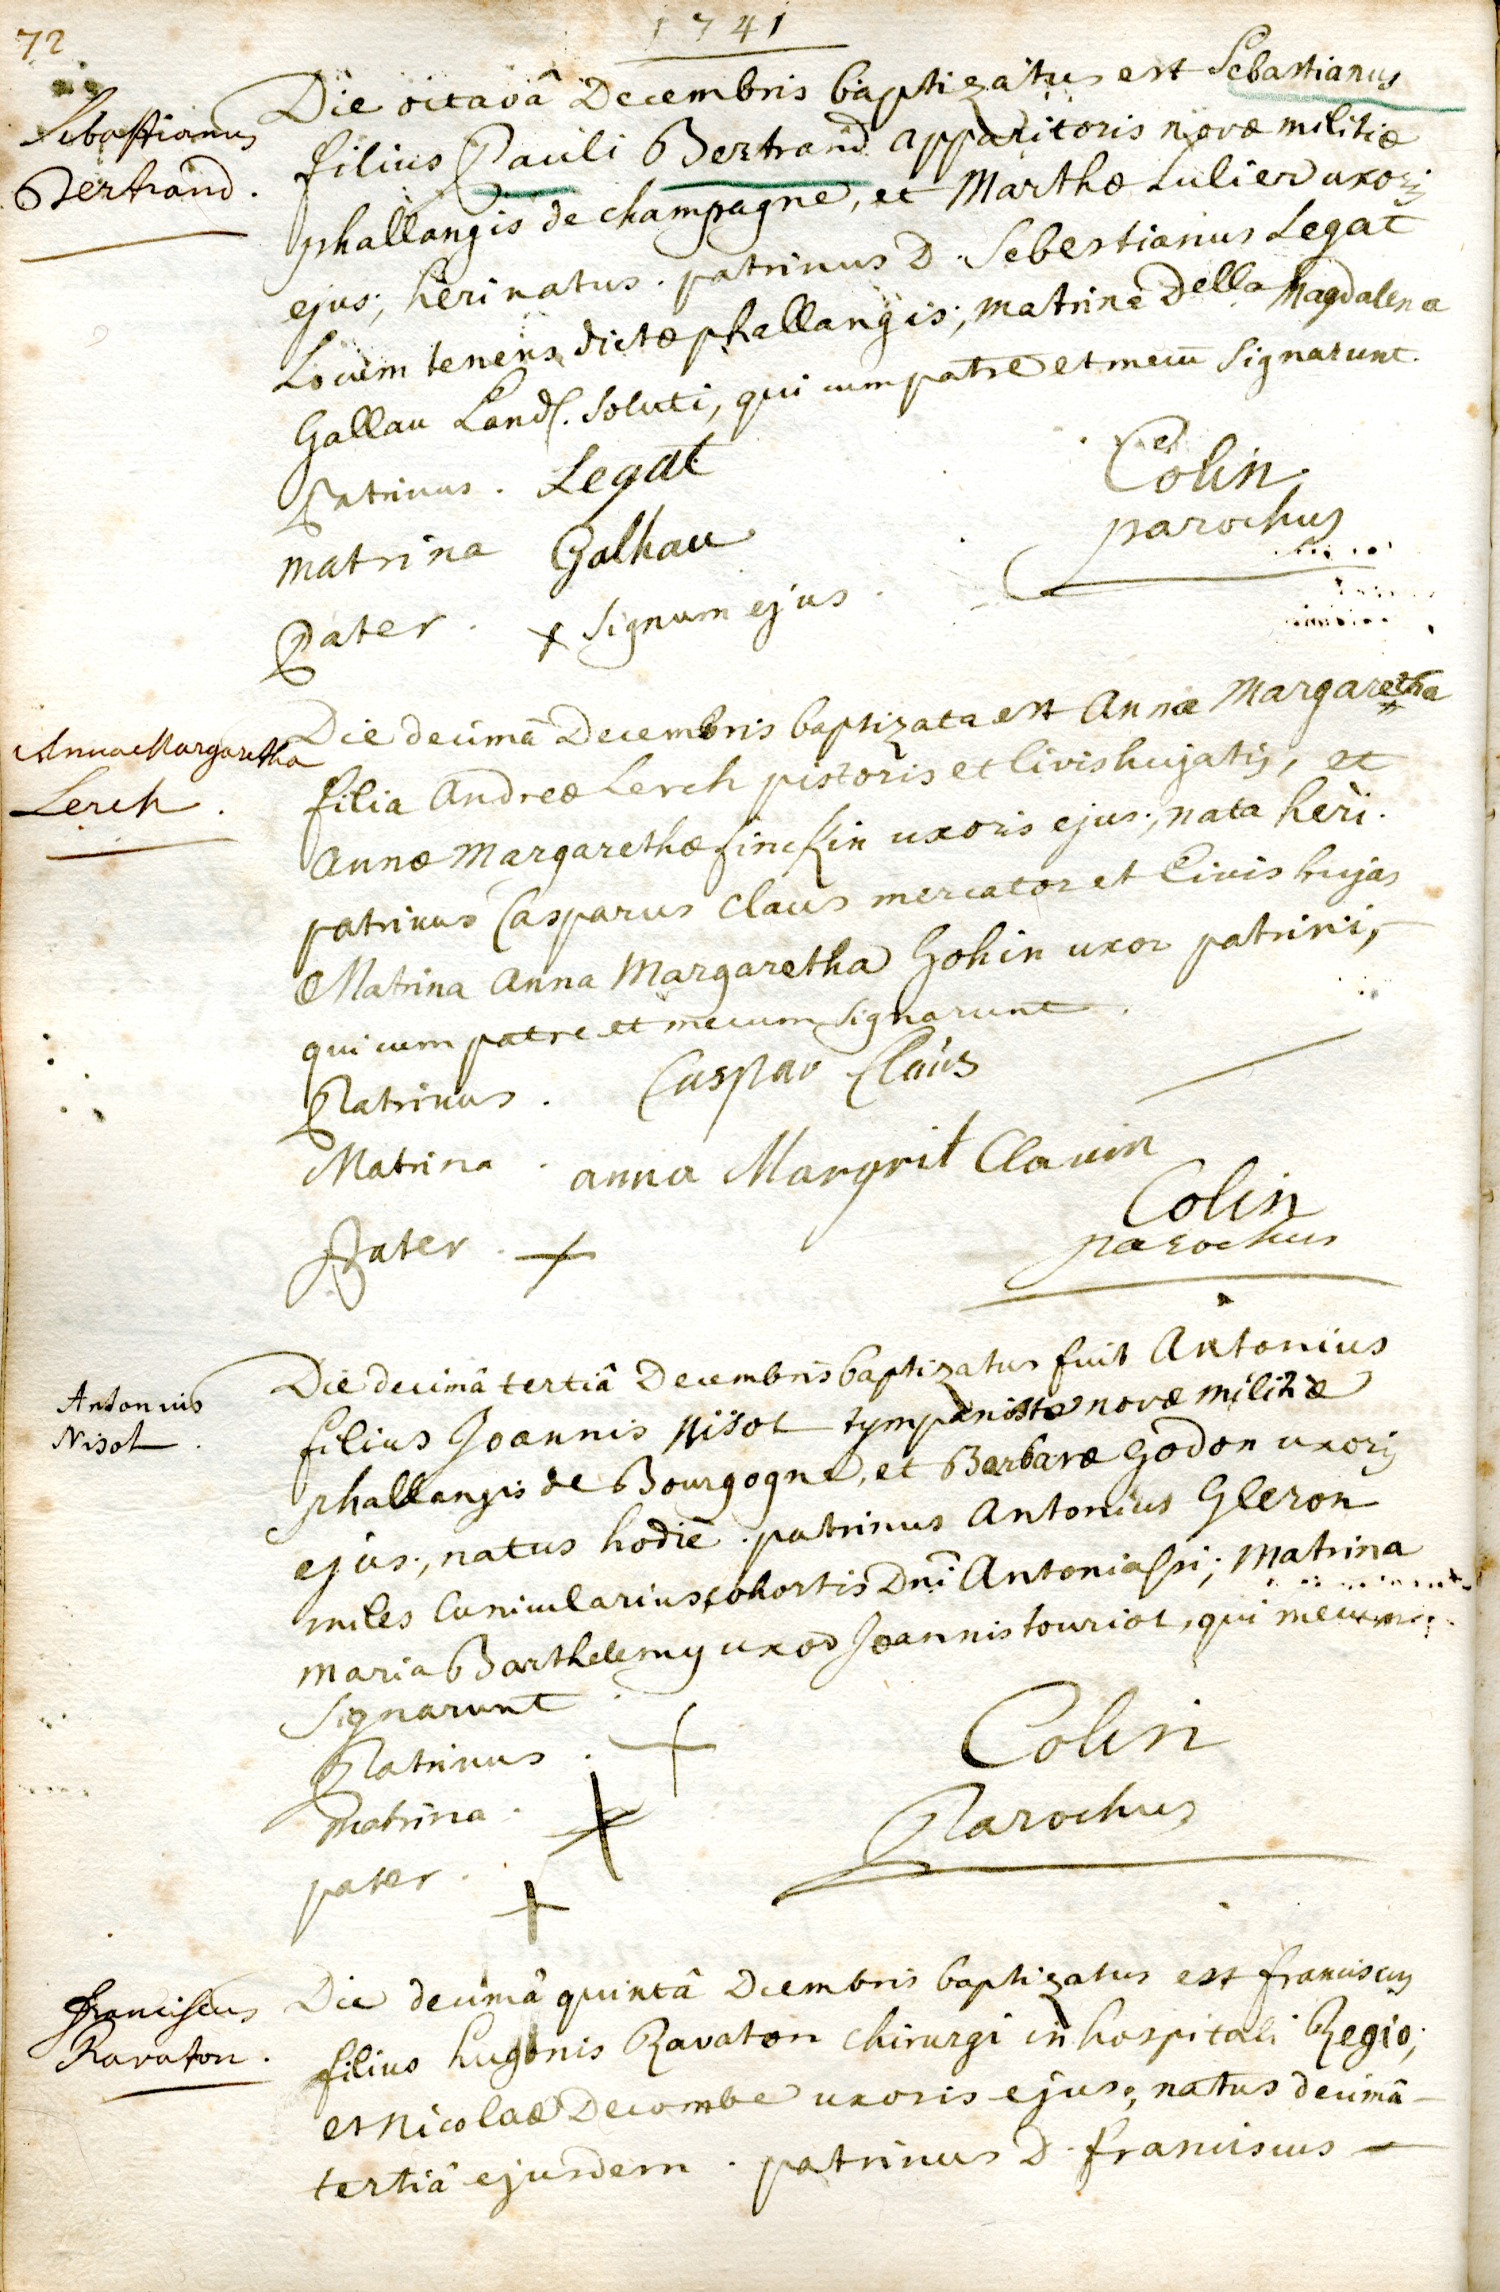 72
1741
Sebastianus
Bertrand.
Die octavâ Decembris baptizatus est Sebastianus
filius Pauli Bertrand apparitoris novæ militiæ
phallangis de champagne, et Marthæ Lulier uxoris
ejus; heri natus. patrinus D. Sebestianus Legat
Locum tenens dictæ phallangis; matrina Della Magdalena
Gallau Land. soluti, qui cum patre et mecū signarunt.
Patrinus. Legat
matrina Galhau
Pater. + signum ejus
Colin
parochus
Anna Margaretha
Lerch.
Die decimâ Decembris baptizata est Anna Margaretha
filia Andreæ Lerch pistoris et Civis hujatis, et
Annæ Margarethæ finckin uxoris ejus; nata heri.
patrinus Casparus Claus mercator et Civis hujas
Matrina Anna Margaretha Gohin uxor patrini,
qui cum patre et mecum signarunt.
Patrinus. Caspar Claus
Matrina. anna Margrit Clausin
Pater. +
Colin
parochus
Antonius
Nisot.
Die decimâ tertiâ Decembris baptizatus fuit Antonius
filius Joannis Nisot tympanistæ novæ militiæ
phallangis de Bourgogne, et Barbaræ Godon uxoris
ejus; natus hodie. patrinus Antonius Gleron
miles Cunicularius cohortis Dni Antoniassi; Matrina
Maria Barthelemy uxor Joannis touriot, qui mecum
signarunt
Patrinus. +
Matrina. +
pater. +
Colin
Parochus
Franciscus
Ravaton.
Die decimâ quintâ Dcembris baptizatus est franciscus
filius hugonis Ravaton chirurgi in hospitali Regio;
et Nicolaæ Decombe uxoris ejus; natus decimâ
tertiâ ejusdem. patrinus D. franciscus